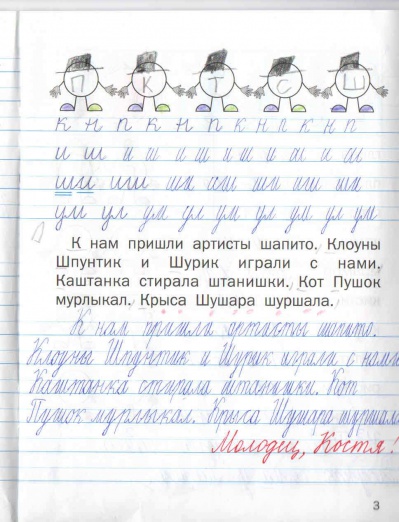 П К Т С Ш
к н п к н п к н п к н п к н п
и ш и ш и ш и ш и ш и ш
ши иш ши иш ши иш ши
ум ул ум ул ум ул ум ул ум
К нам пришли артисты шапито. Клоуны
Шпунтик и Шурик играли с нами.
Каштанка стирала штанишки. Кот Пушок
мурлыкал. Крыса Шушара шуршала.
К нам пришли артисты шапито.
Клоуны Шпунтик и Шурик играли с нами
Каштанка стирала штанишки. Кот
Пушок мурлыкал. Крыса Шушара шуршал
Молодец, Костя!
3